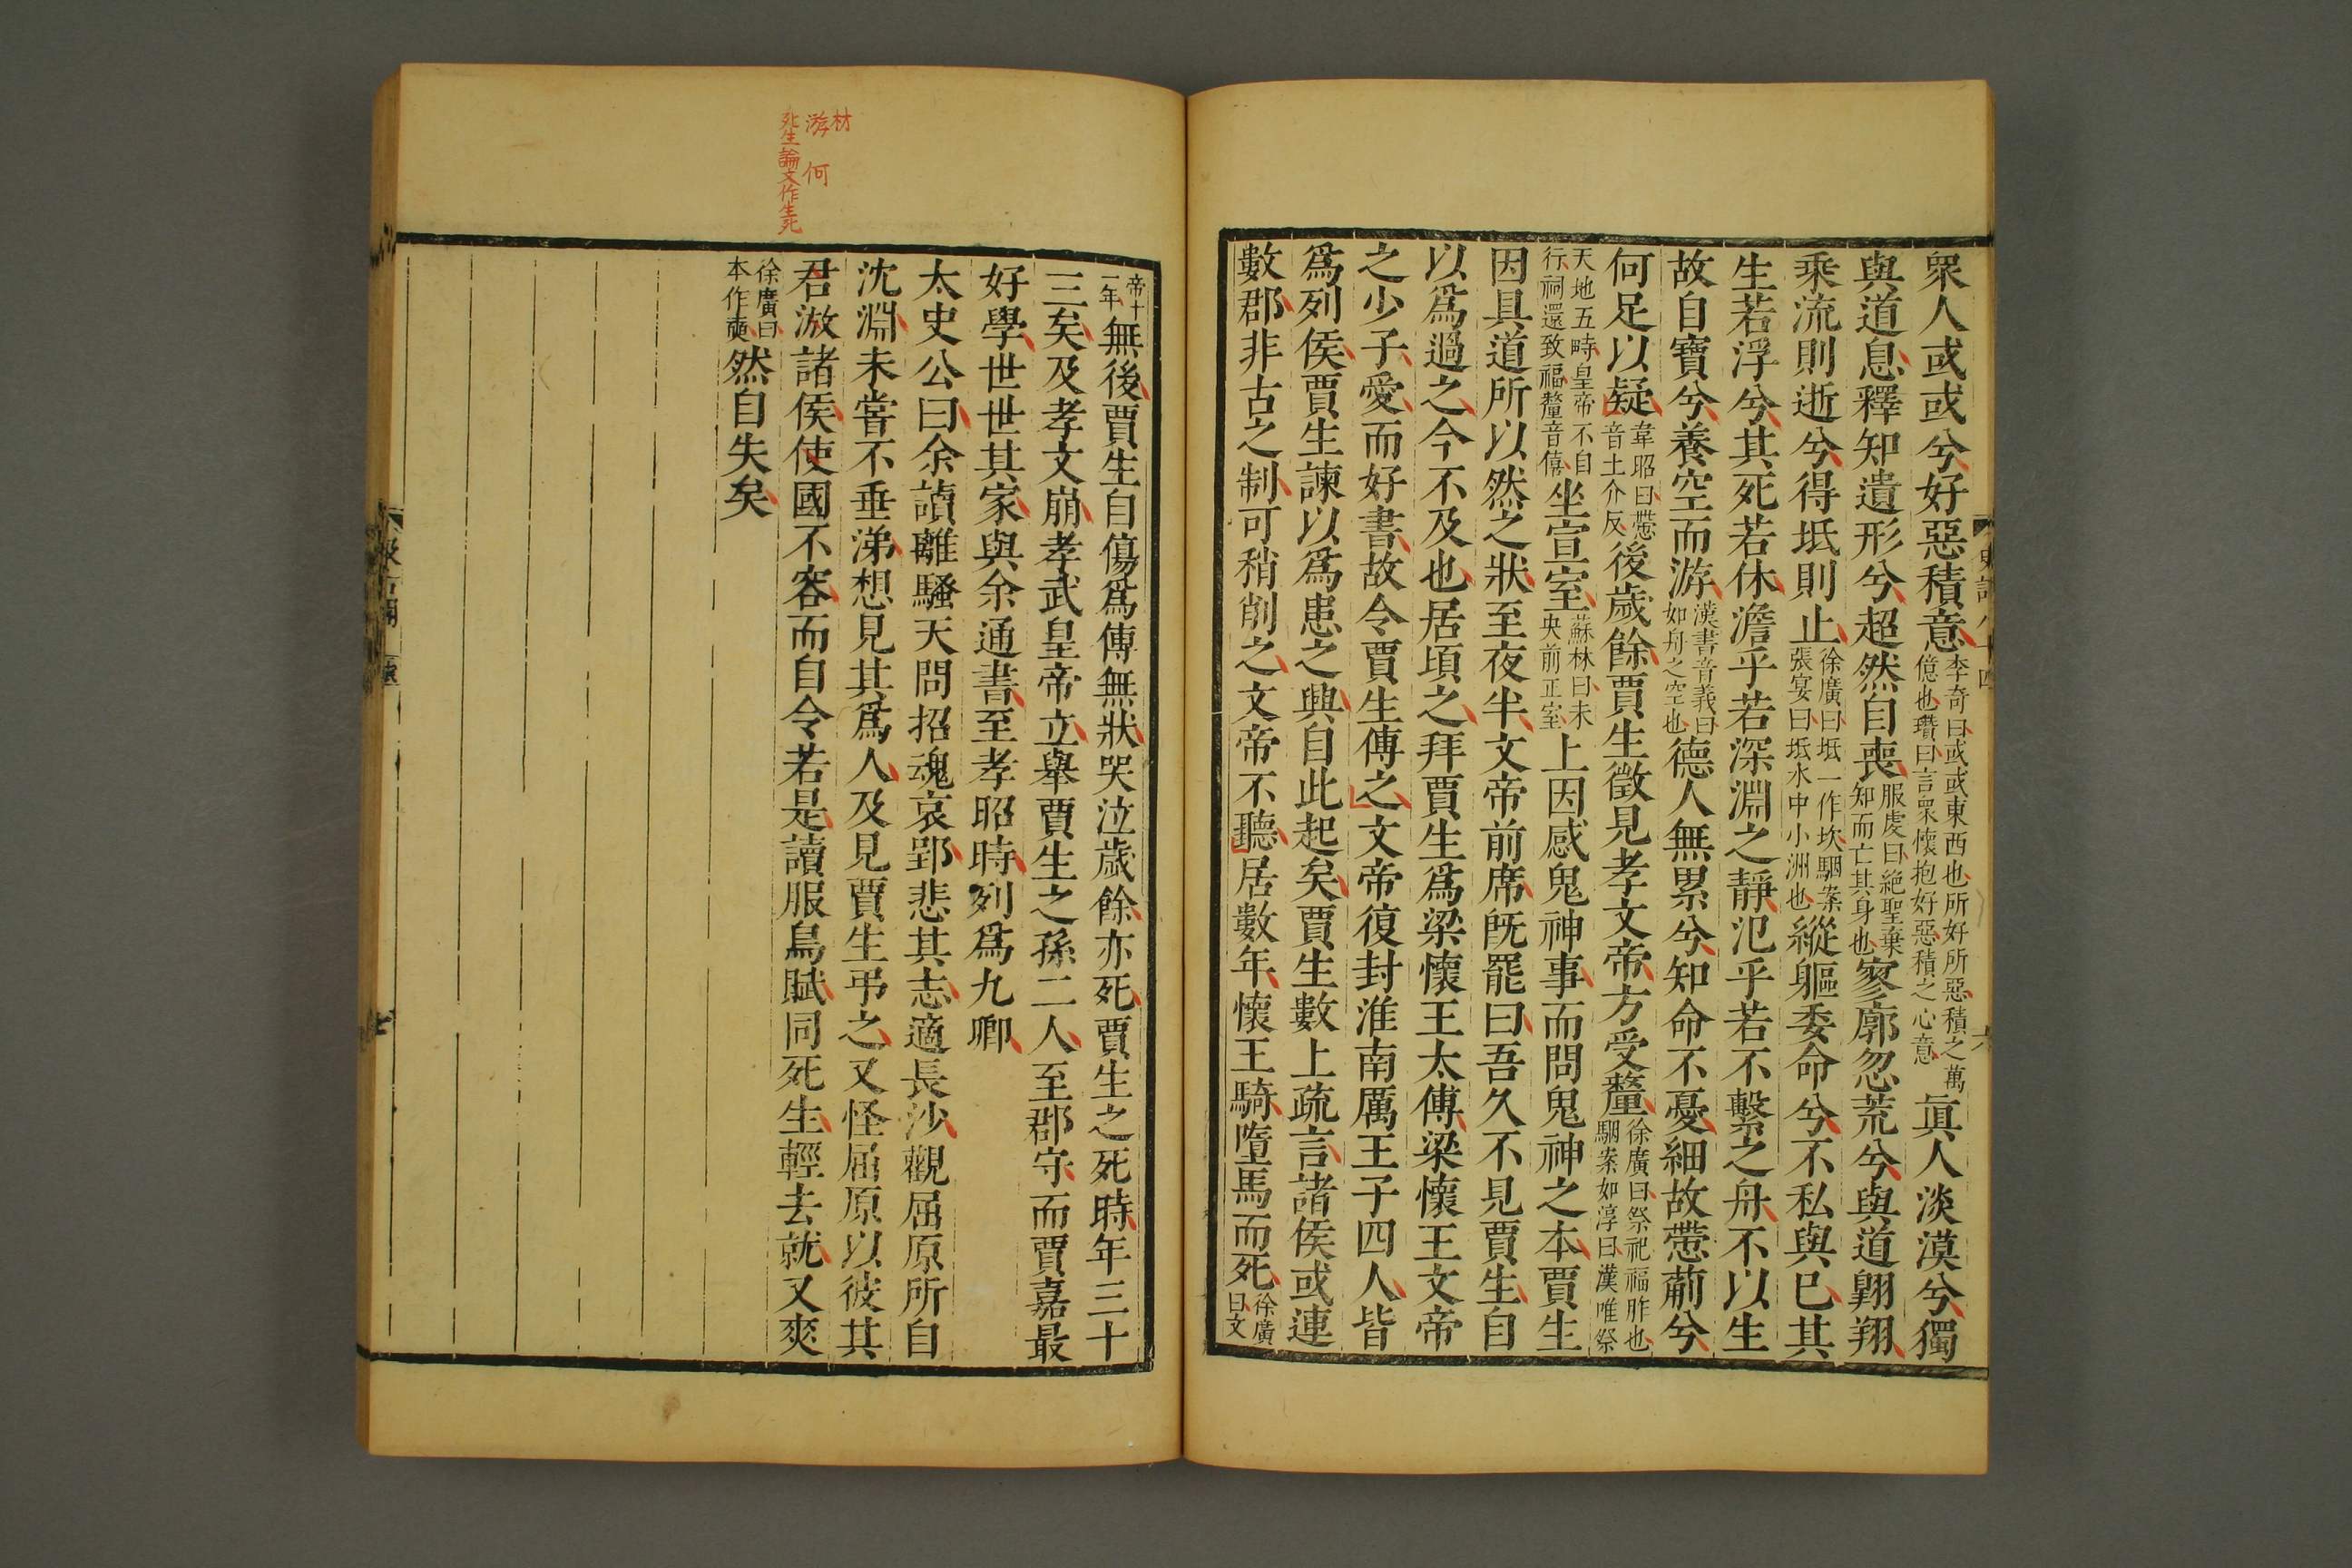 衆人或或兮好惡積意李奇曰或或東西也所好所惡積之萬億也瓚曰言衆懷抱好惡積之心意眞人淡漠兮獨
與道息釋知遺形兮超然自喪服虔曰絶聖棄知而亡其身也寥廓忽荒兮與道翺翔
乘流則逝兮得坻則止徐廣曰坻一作坎駰案張宴曰坻水中小洲也縱軀委命兮不私與已其
生若浮兮其死若休澹乎若深淵之靜氾乎若不繫之舟不以生
故自寶兮養空而游漢書音義曰如舟之空也德人無累兮知命不憂細故慸葪兮
何足以疑韋昭曰慸音士介反後歲餘賈生徵見孝文帝方受釐徐廣曰祭祀福胙也駰案如淳曰漢唯祭
天地五畤皇帝不自行祠還致福釐音僖坐宣室蘇林曰未央前正室上因感鬼神事而問鬼神之本賈生
因具道所以然之狀至夜半文帝前席旣罷曰吾久不見賈生自
以爲過之今不及也居頃之拜賈生爲梁懷王太傅梁懷王文帝
之少子愛而好書故令賈生傅之文帝復封淮南厲王子四人皆
爲列侯賈生諫以爲患之興自此起矣賈生數上疏言諸侯或連
數郡非古之制可稍削之文帝不聽居數年懷王騎墮馬而死徐廣曰文
史記八十四
六
帝十一年無後賈生自傷爲傅無狀哭泣歲餘亦死賈生之死時年三十
三矣及孝文崩孝武皇帝立舉賈生之孫二人至郡守而賈嘉最
好學世世其家與余通書至孝昭時列爲九卿
太史公曰余讀離騷天問招魂哀郢悲其志適長沙觀屈原所自
沈淵未嘗不垂涕想見其爲人及見賈生弔之又怪屈原以彼其
君游諸侯使國不容而自令若是讀服鳥賦同死生輕去就又爽
徐廣曰本作奭然自失矣
材
游 何
死生論文作生死
七